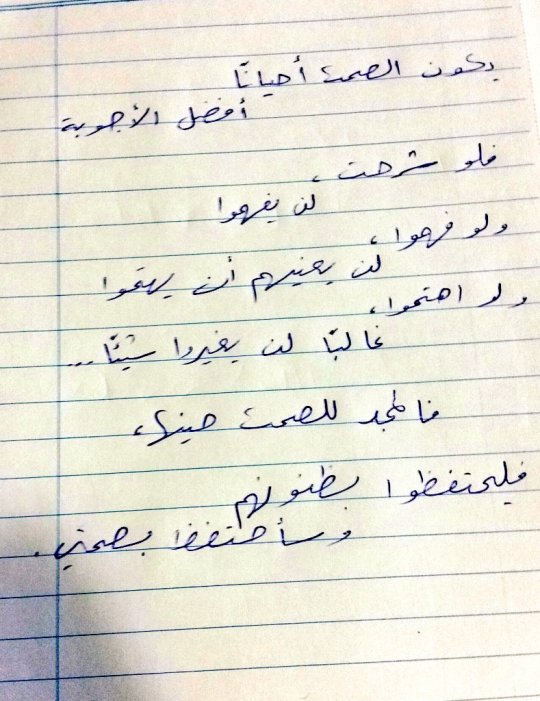 يكون الصمت أحيانًا
أفضل الأجوبة
فلو شرحت،
لن يفهموا
ولو فهموا،
لن يعنيهم أن يهتموا
ولو اهتموا،
غالبًا لن يغيروا شيئًا...
فالمجد للصمت حينها،
فليحتفظوا بظنونهم
وسأحتفظ بصمتي.